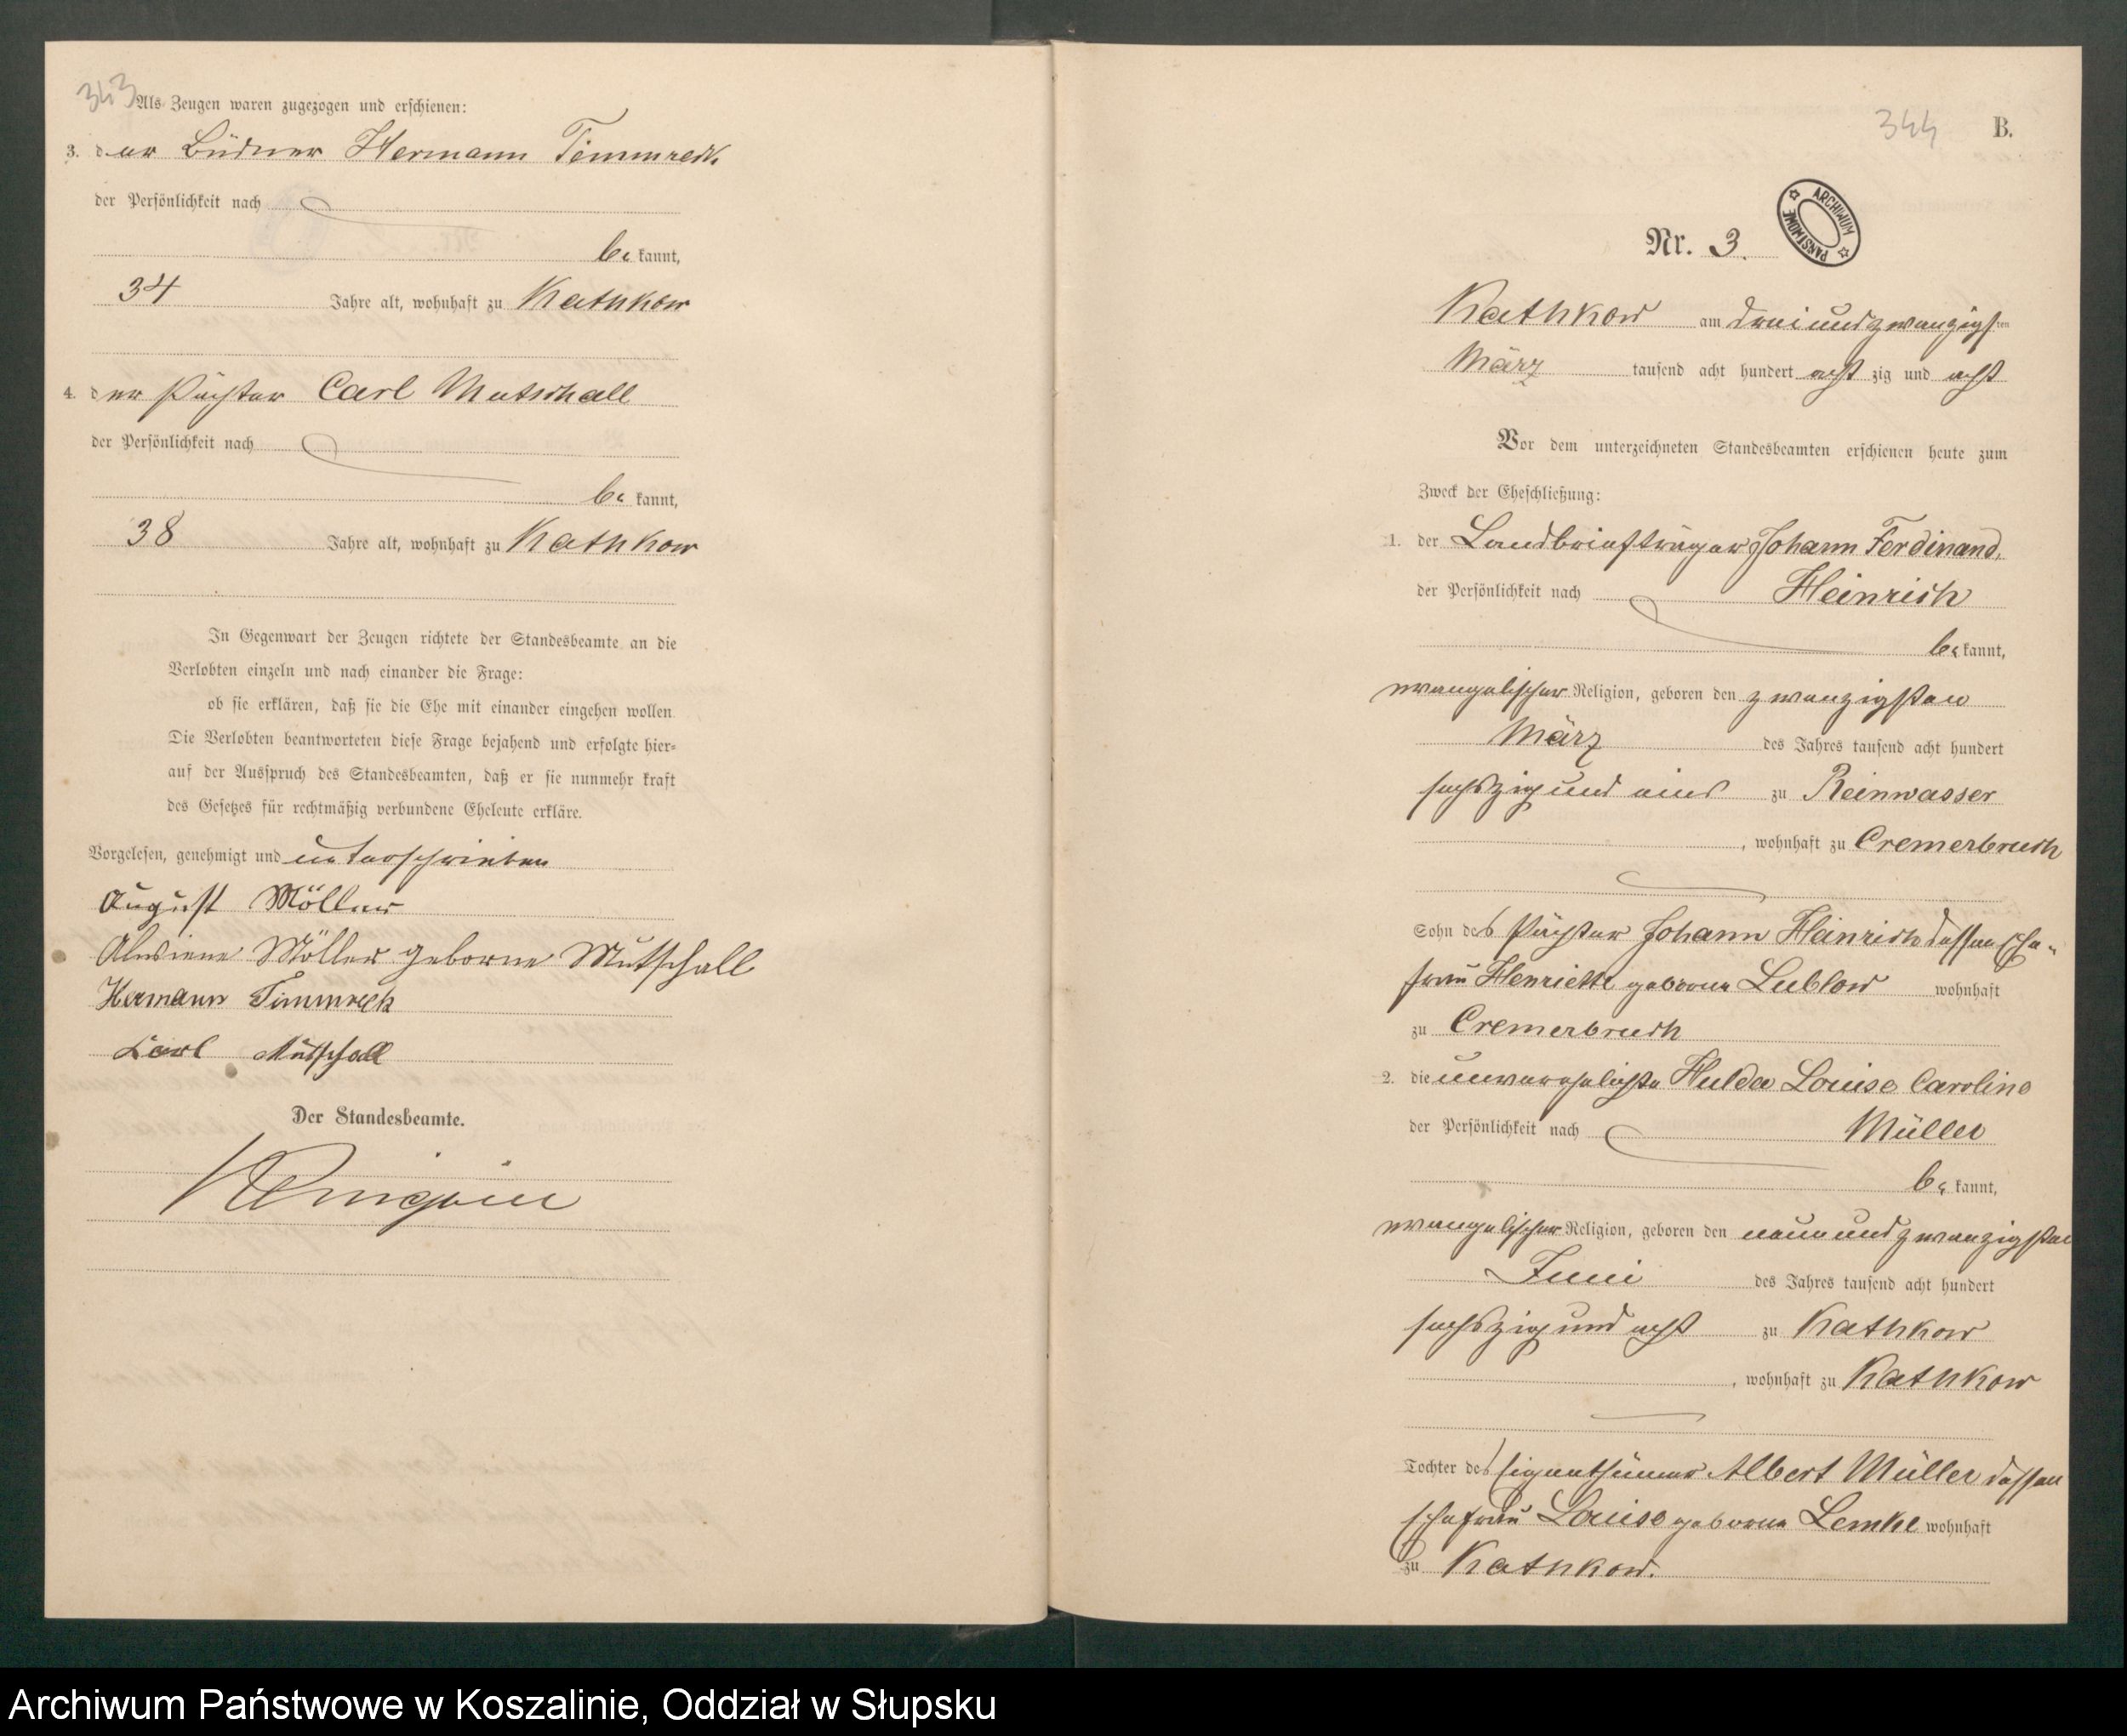 343
Als Zeugen waren zugezogen und erschienen:
3. der Büdner Hermann Timmreck
der Persönlichkeit nach
bekannt,
34 Jahre alt, wohnhaft zu Kathkow
4. der Pächter Carl Mutschall
der Persönlichkeit nach
bekannt,
38 Jahre alt, wohnhaft zu Kathkow
In Gegenwart der Zeugen richtete der Standesbeamte an die
Verlobten einzeln und nach einander die Frage:
ob sie erklären, daß sie die Ehe mit einander eingehen wollen
Die Verlobten beantworteten diese Frage bejahend und erfolgte hier=
auf der Ausspruch des Standesbeamten, daß er sie nunmehr kraft
des Gesetzes für rechtmäßig verbundene Eheleute erkläre.
Vorgelesen, genehmigt und unterschrieben
August Möller
Möller geborne Mutschall
Hermann Timmreck
Karl Mutschall
Der Standesbeamte.
344 B.
ARCHIWUM PAŃSTWOWE
Nr. 3.
Kathkow am dreiundzwanzigsten
März tausend acht hundert acht zig und acht
Vor dem unterzeichneten Standesbeamten erschienen heute zum
Zweck der Eheschließung:
1. der Landbriefträger Johann Ferdinand
der Persönlichkeit nach Heinrich
bekannt,
evangelischer Religion, geboren den zwanzigsten
März des Jahres tausend acht hundert
sechszig und eins zu Reinwasser
, wohnhaft zu Cremerbruch
Sohn des Pächter Johann Heinrich dessen Ehe-
frau Henriette geborne Lublow wohnhaft
zu Cremerbruch
2. die unverehelichte Hulda Louise Caroline
der Persönlichkeit nach Müller
bekannt,
evangelischer Religion, geboren den neunundzwanzigsten
Juni des Jahres tausend acht hundert
sechszig und acht zu Kathkow
, wohnhaft zu Kathkow
Tochter des Eigenthümer Albert Müller dessen
Ehefrau Louise geborne Lemke wohnhaft
zu Kathkow.
Archiwum Państwowe w Koszalinie, Oddział w Słupsku